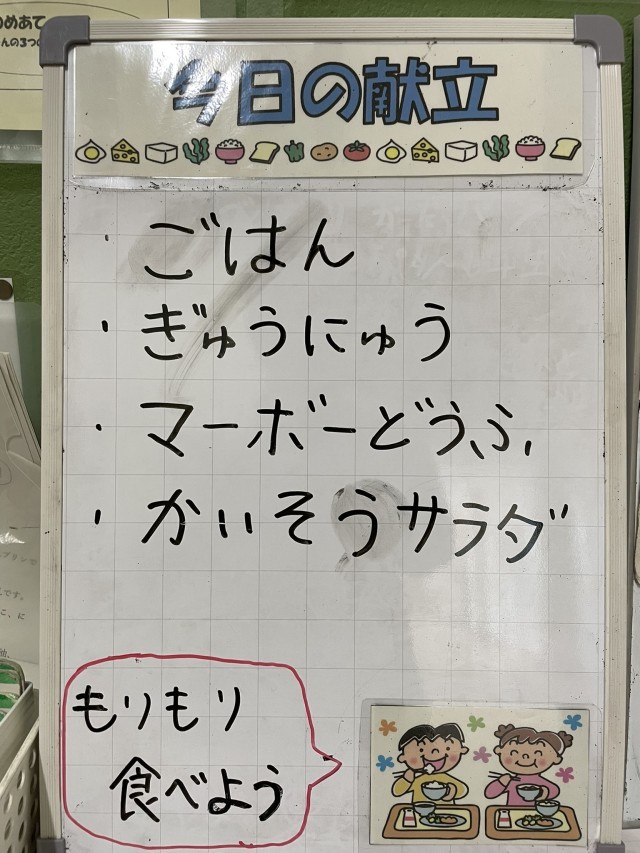 のめあて
今日の献立
・ごはん
・ぎゅうにゅう
・マーボーどうふ
・かいそうサラダ
もりもり
食べよう